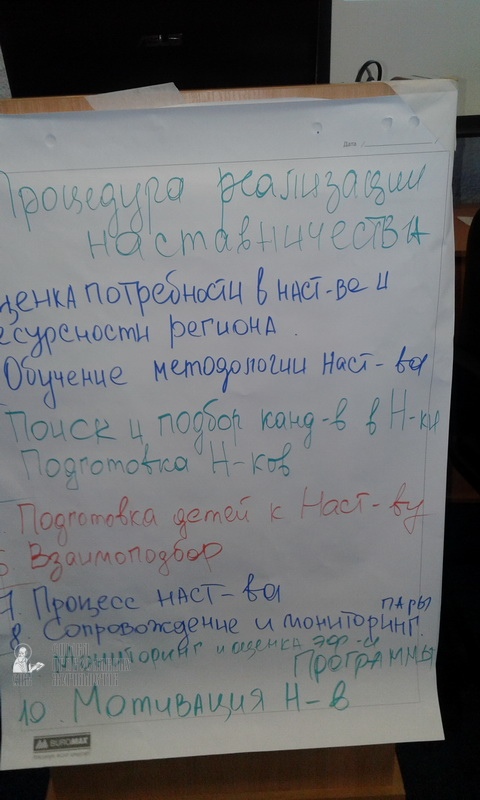 Дата
Процедура реализации
наставничества
ценка потребности в наст-ве и
есурсности региона.
Обучение методологии наст-ва
Поиск и подбор канд-в в Н-ки
Подготовка Н-ков
Подготовка детей к Наст-ву
6. Взаимоподбор
7. Процесс наст-ва
8. Сопровождение и мониторинг пары
Мониторинг и оценка эф-и
программы
10. Мотивация Н-в
BUROMAX